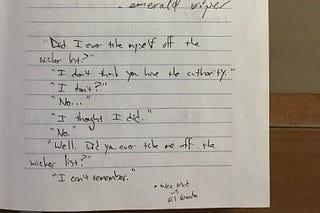 emerald viper
"Did I ever take myself off the
wicker list?"
"I don't think you have the authority."
"I don't?"
"No..."
"I thought I did."
"No."
"Well. Did you ever take me off the
wicker list?"
"I can't remember."